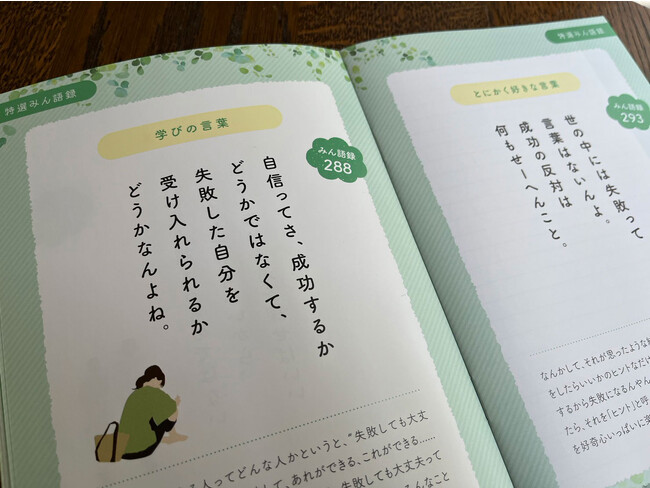 特選みん語録
学びの言葉
みん語録
288
自信ってさ、成功するか
どうかではなくて、
失敗した自分を
受け入れられるか
どうかなんよね。
人ってどんな人かというと、“失敗しても大丈
して、あれができる、これができる……
失敗しても大丈夫って
んなこと
特選みん語録
とにかく好きな言葉
みん語録
293
世の中には失敗って
言葉はないんよ。
成功の反対は
何もせーへんこと。
なんかして、それが思ったような結
をしたらいいかのヒントなだけ
するから失敗になるんやん
たら、それを「ヒント」と呼
を好奇心いっぱいに楽